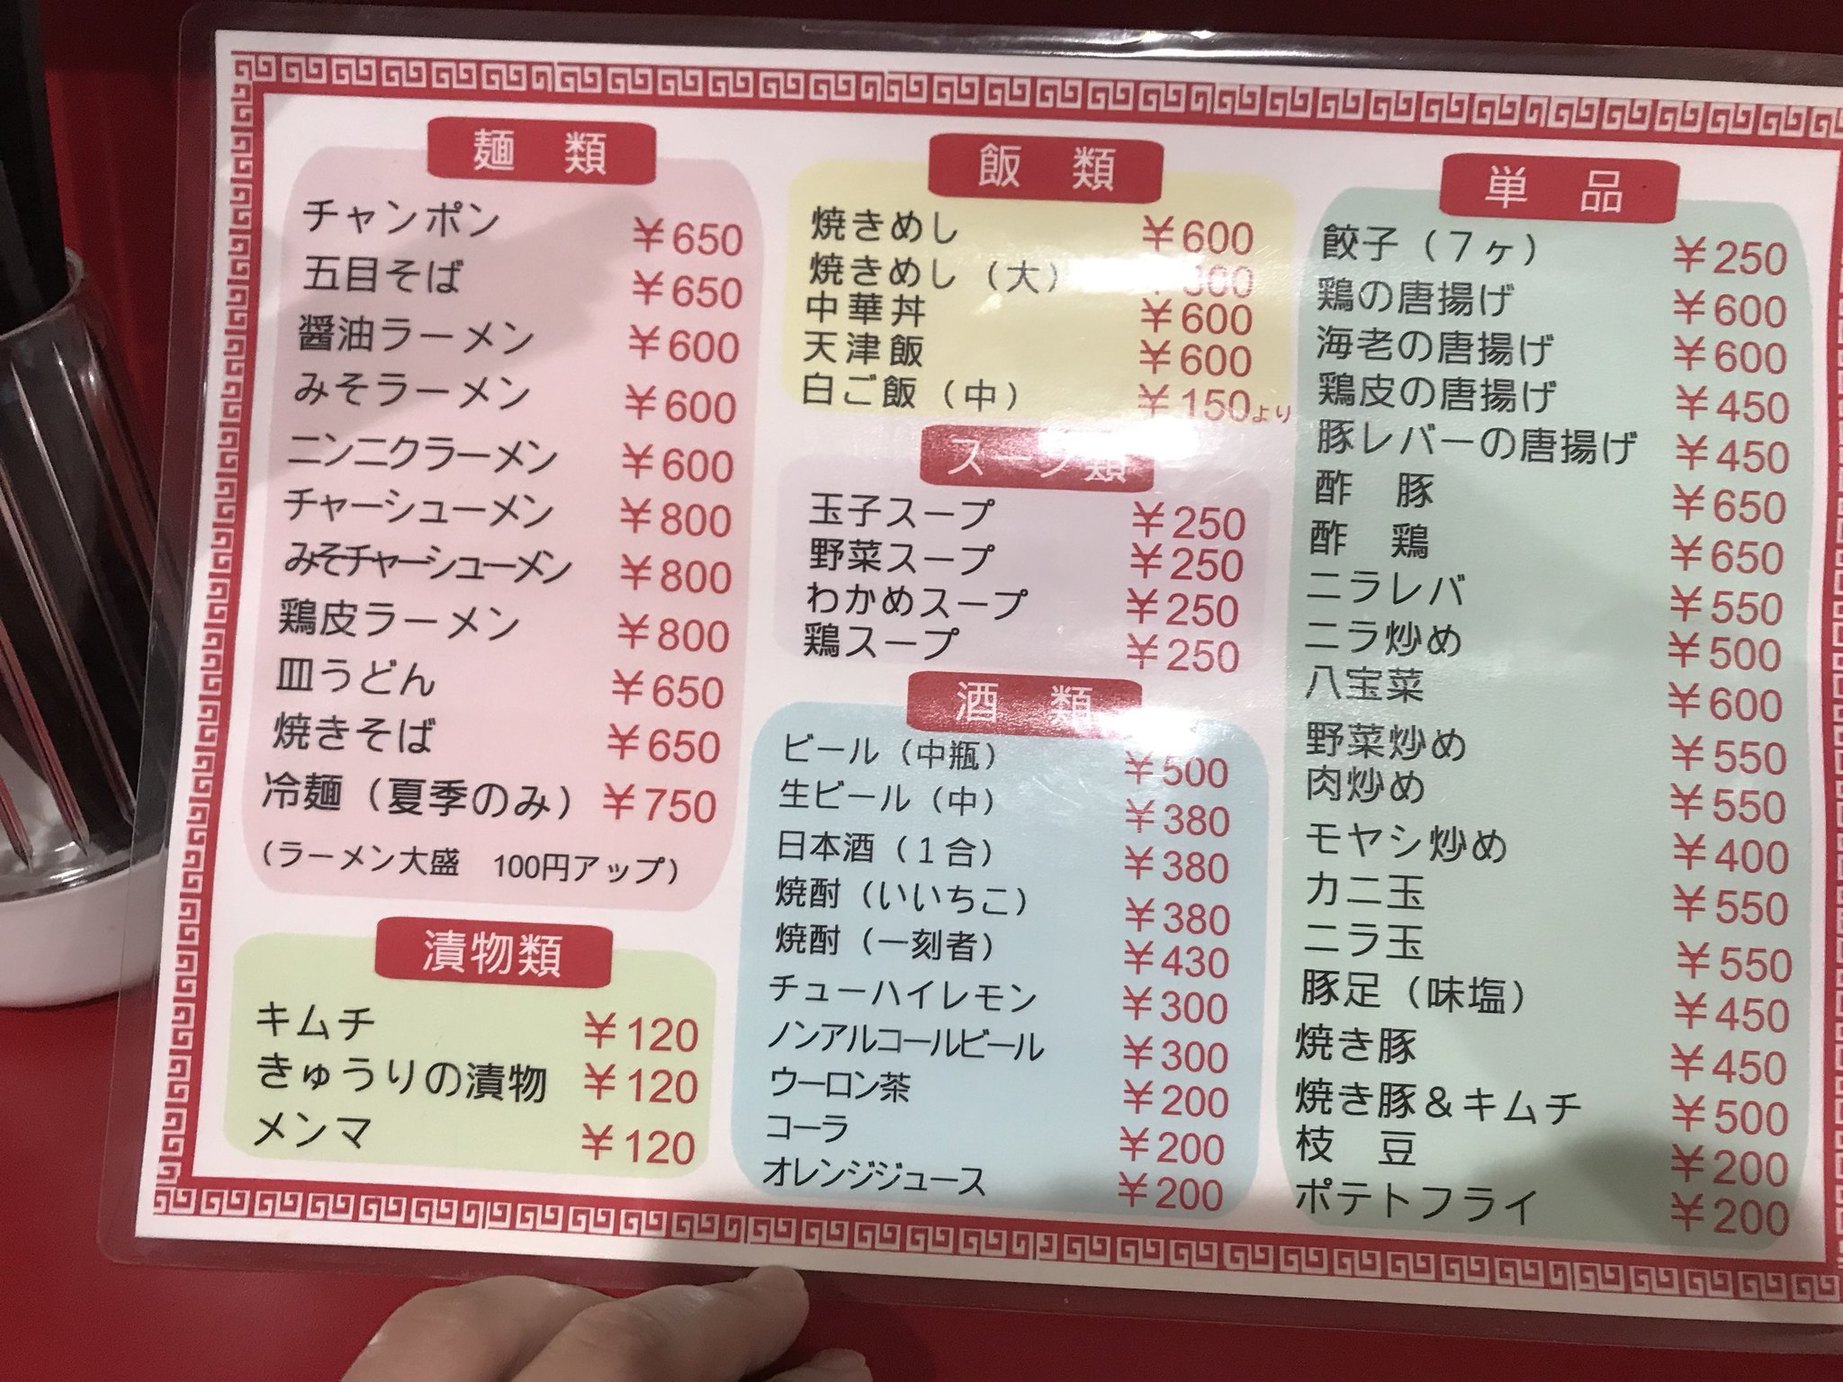 麺 類
チャンポン ¥650
五目そば ¥650
醤油ラーメン ¥600
みそラーメン ¥600
ニンニクラーメン ¥600
チャーシューメン ¥800
みそチャーシューメン ¥800
鶏皮ラーメン ¥800
皿うどん ¥650
焼きそば ¥650
冷麺（夏季のみ） ¥750
（ラーメン大盛 100円アップ）
漬物類
キムチ ¥120
きゅうりの漬物 ¥120
メンマ ¥120
飯 類
焼きめし ¥600
焼きめし（大）
中華丼 ¥600
天津飯 ¥600
白ご飯（中） ¥150より
スープ類
玉子スープ ¥250
野菜スープ ¥250
わかめスープ ¥250
鶏スープ ¥250
酒 類
ビール（中瓶） ¥500
生ビール（中） ¥380
日本酒（１合） ¥380
焼酎（いいちこ） ¥380
焼酎（一刻者） ¥430
チューハイレモン ¥300
ノンアルコールビール ¥300
ウーロン茶 ¥200
コーラ ¥200
オレンジジュース ¥200
単 品
餃子（７ヶ） ¥250
鶏の唐揚げ ¥600
海老の唐揚げ ¥600
鶏皮の唐揚げ ¥450
豚レバーの唐揚げ ¥450
酢 豚 ¥650
酢 鶏 ¥650
ニラレバ ¥550
ニラ炒め ¥500
八宝菜 ¥600
野菜炒め ¥550
肉炒め ¥550
モヤシ炒め ¥400
カニ玉 ¥550
ニラ玉 ¥550
豚足（味塩） ¥450
焼き豚 ¥450
焼き豚＆キムチ ¥500
枝 豆 ¥200
ポテトフライ ¥200